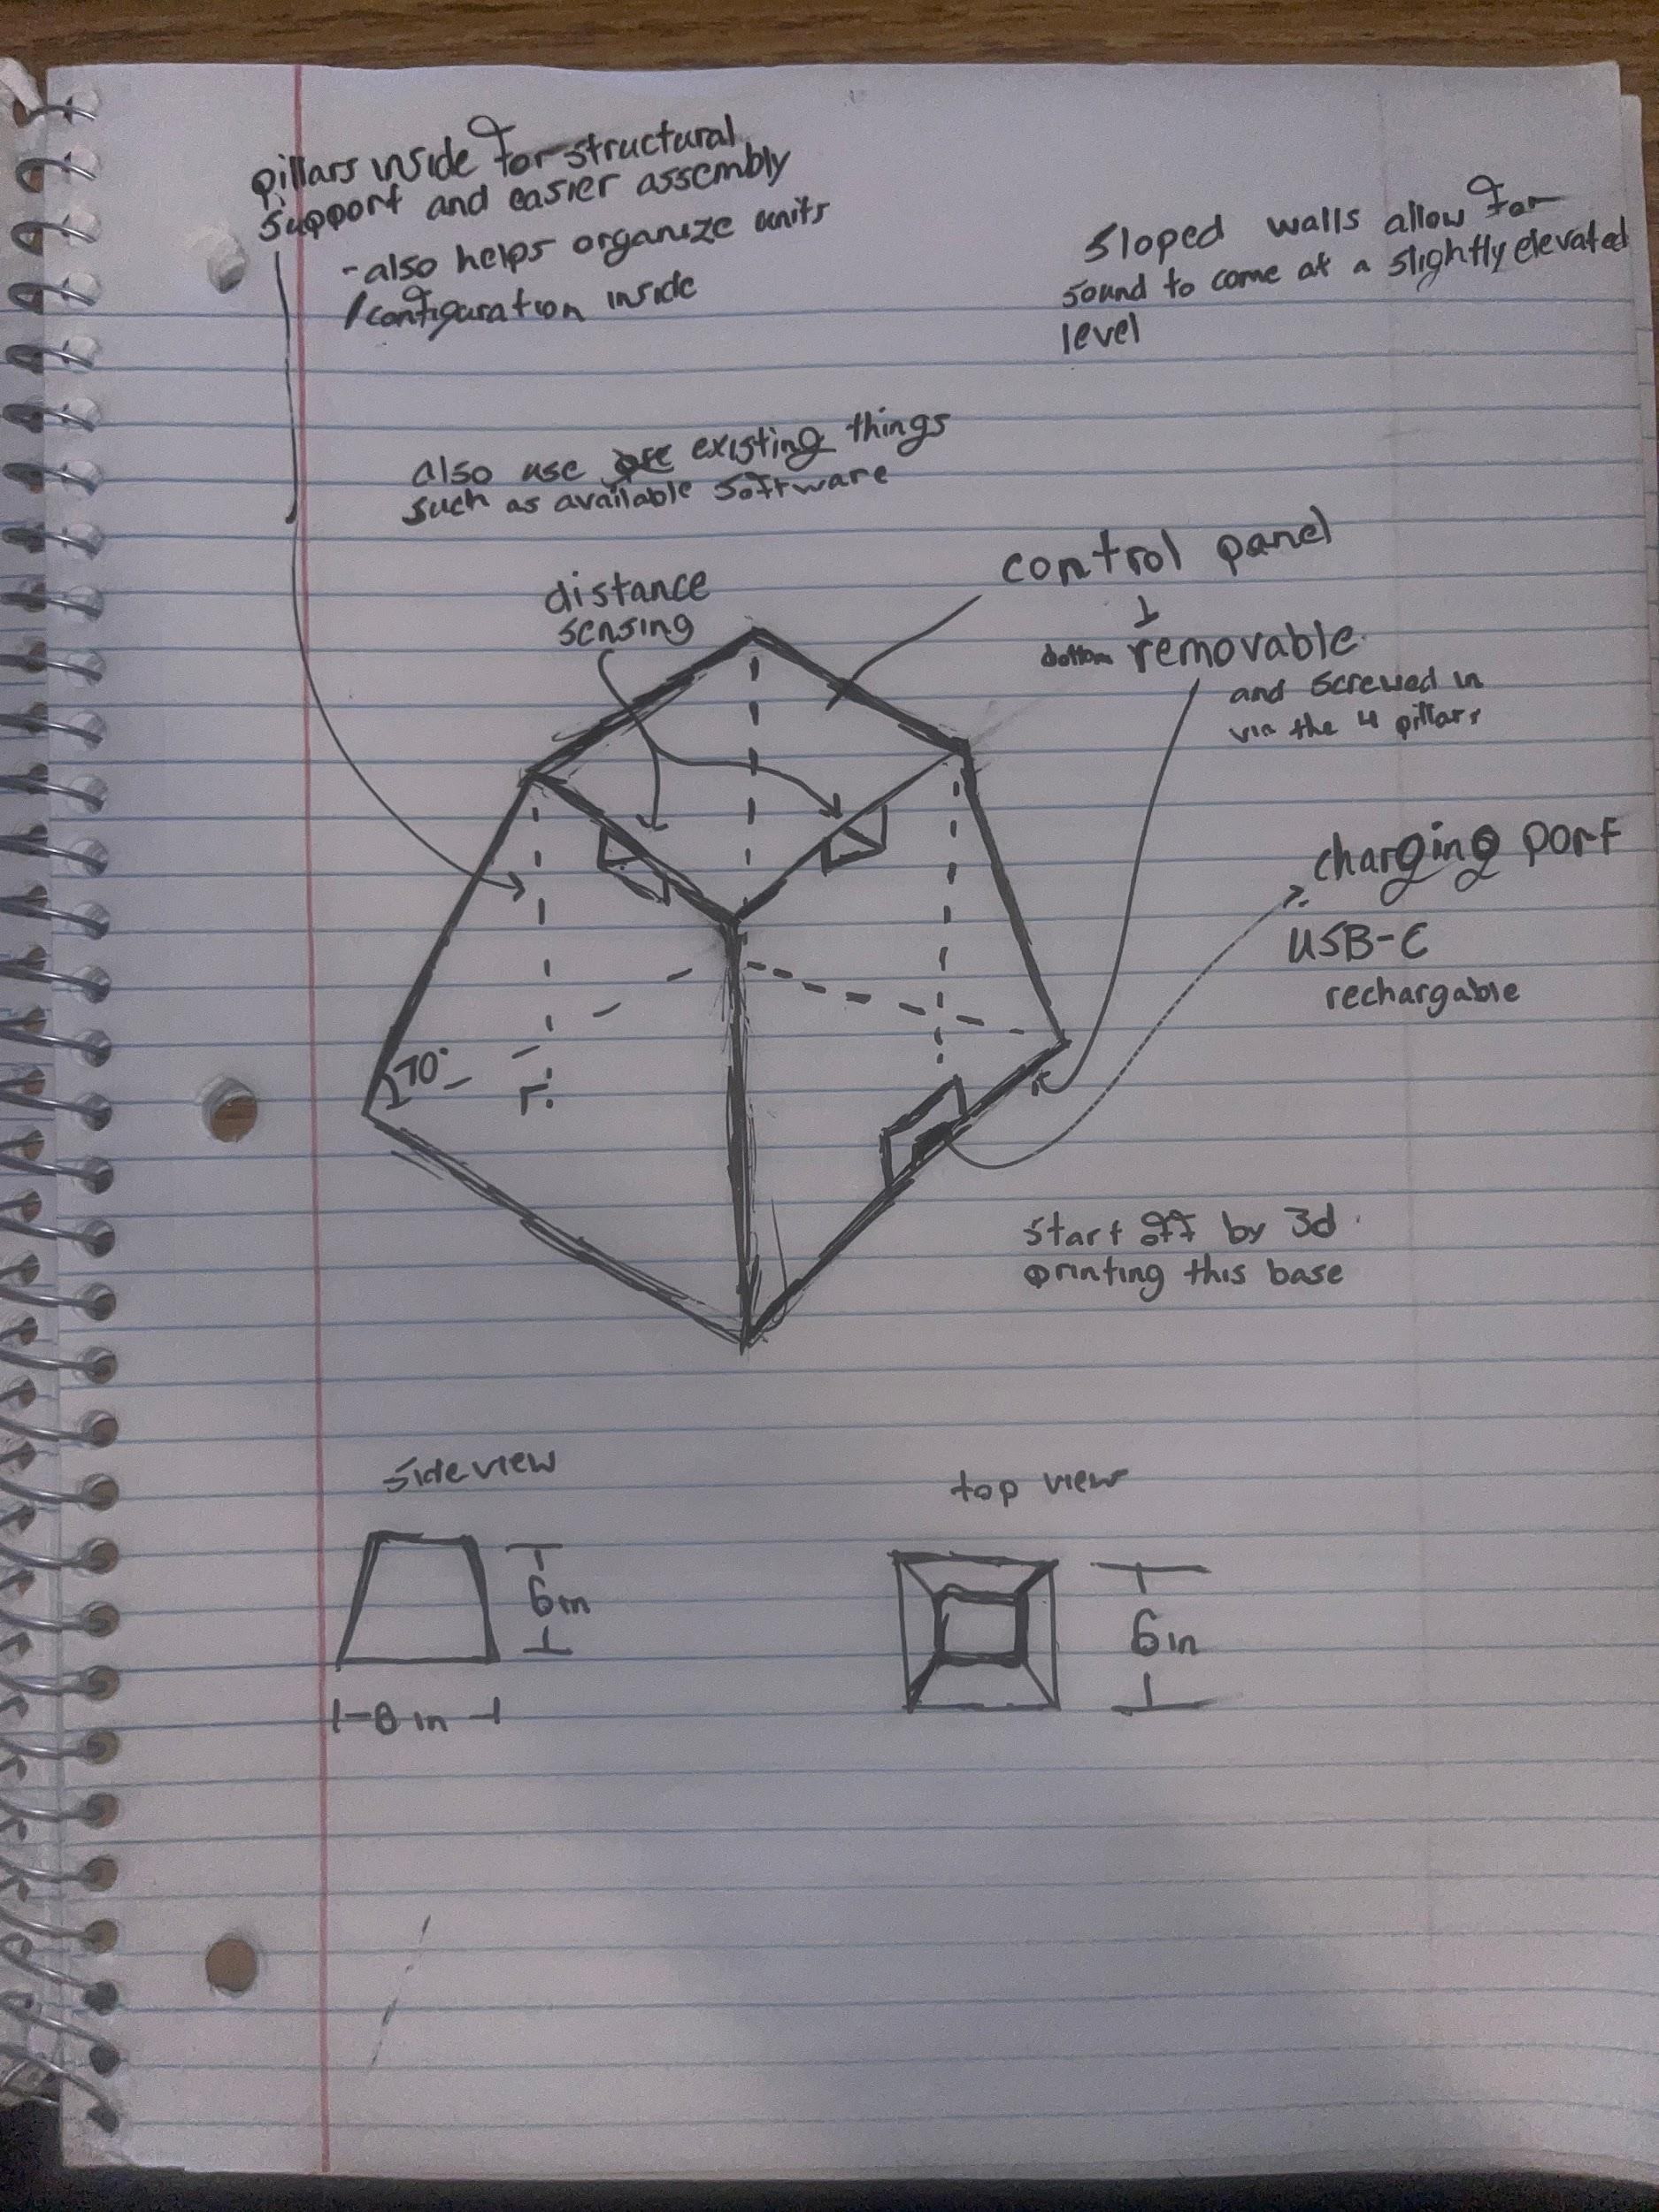 pillars inside for structural
support and easier assembly
- also helps organize units
/configuration inside
sloped walls allow for
sound to come at a slightly elevated
level
also use existing things
such as available software
distance
sensing
control panel
bottom removable
and screwed in
via the 4 pillars
charging port
USB-C
rechargable
70°
start off by 3d
printing this base
side view
top view
6in
8 in
6in